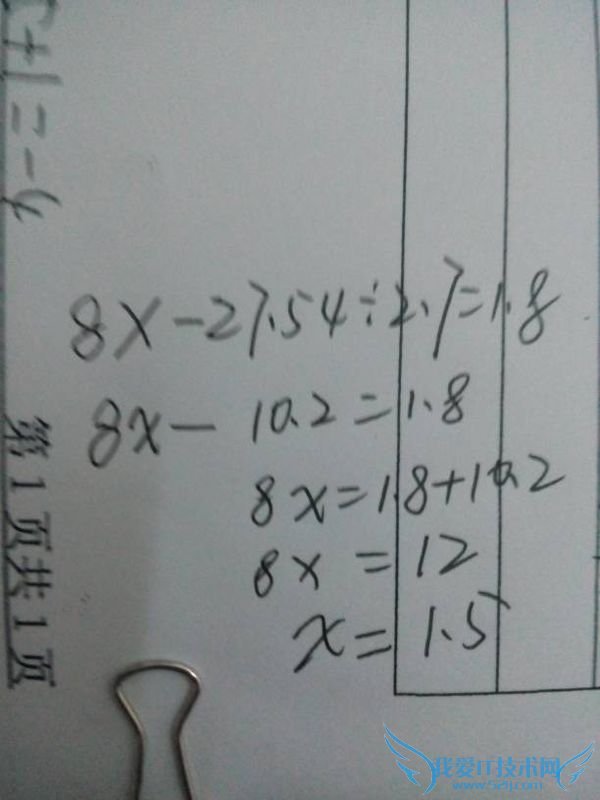 +1=-4
8x-27.54÷2.7=1.8
8x-10.2=1.8
8x=1.8+10.2
8x=12
x=1.5
第1页共1页
我爱IT技术网